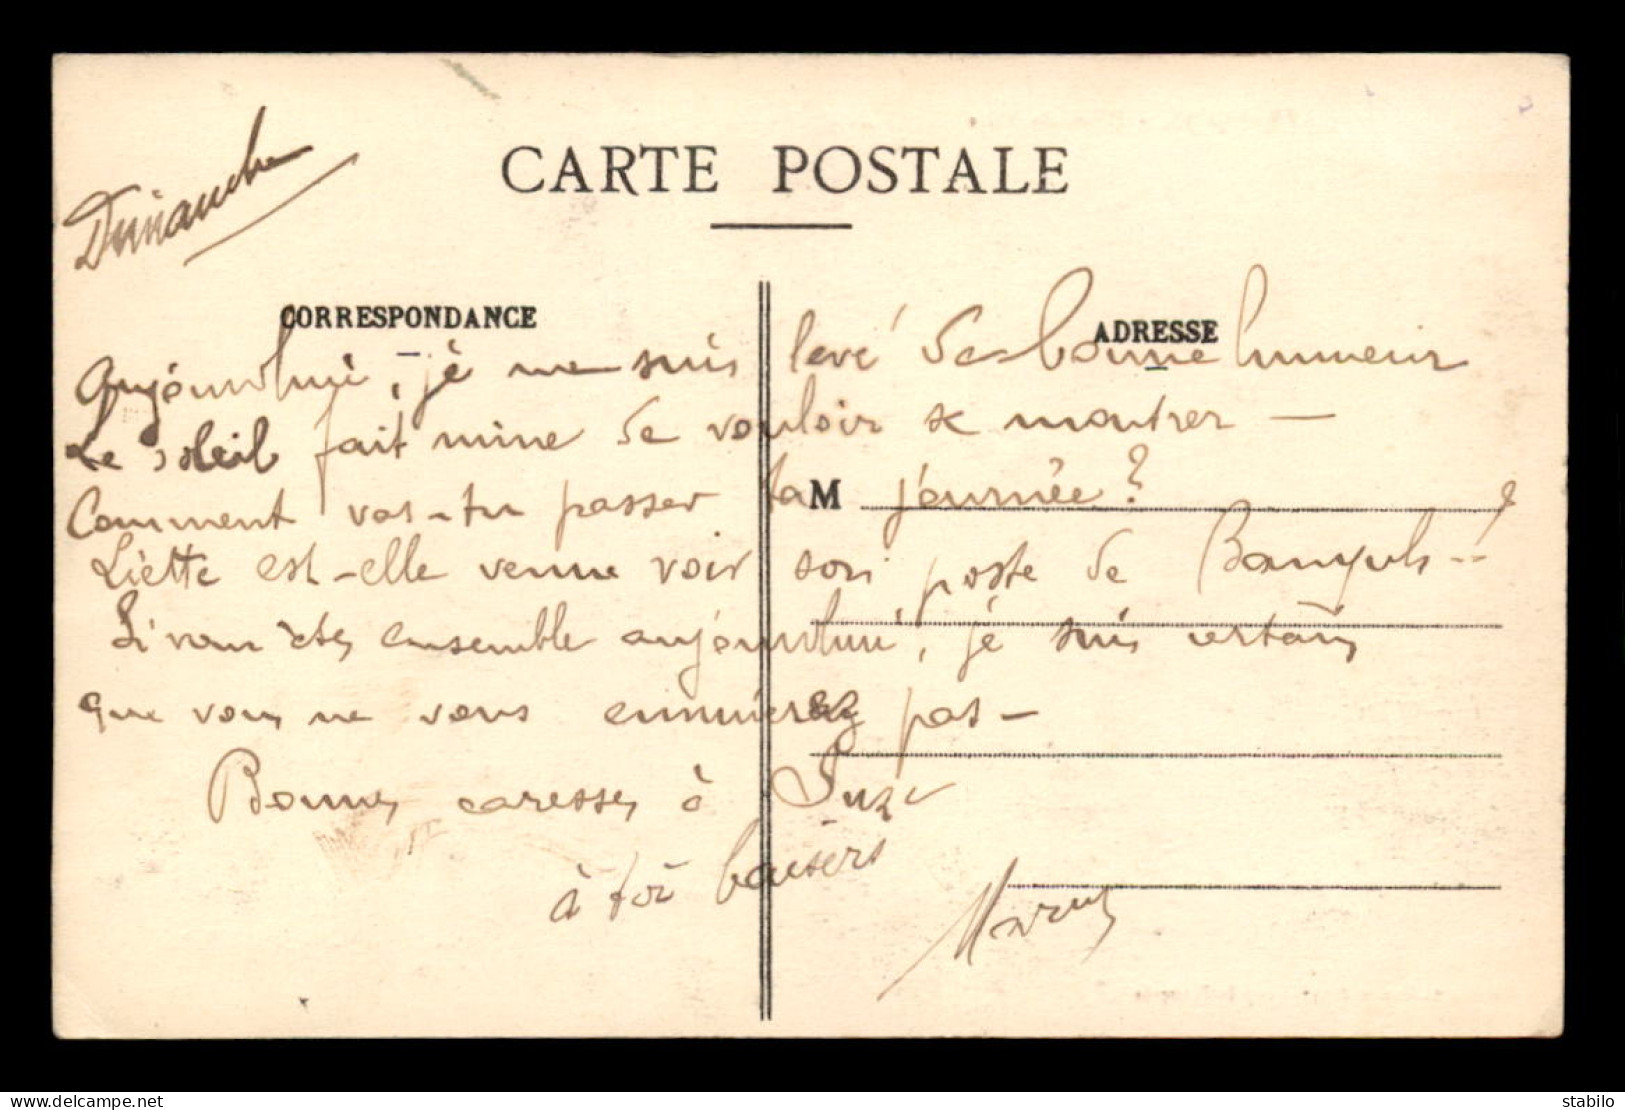 Dimanche
CARTE POSTALE
CORRESPONDANCE
ADRESSE
Aujourd'hui, je me suis levé de bonne humeur
Le soleil fait mine de vouloir se montrer —
M
Comment vas-tu passer ta journée ?
Liette est-elle venue voir son poste de Banyuls !!
Si vous êtes ensemble aujourd'hui, je suis certain
que vous ne vous ennuierez pas —
Bonnes caresses à Suze
à toi baisers
Delcampe.net
stabilo